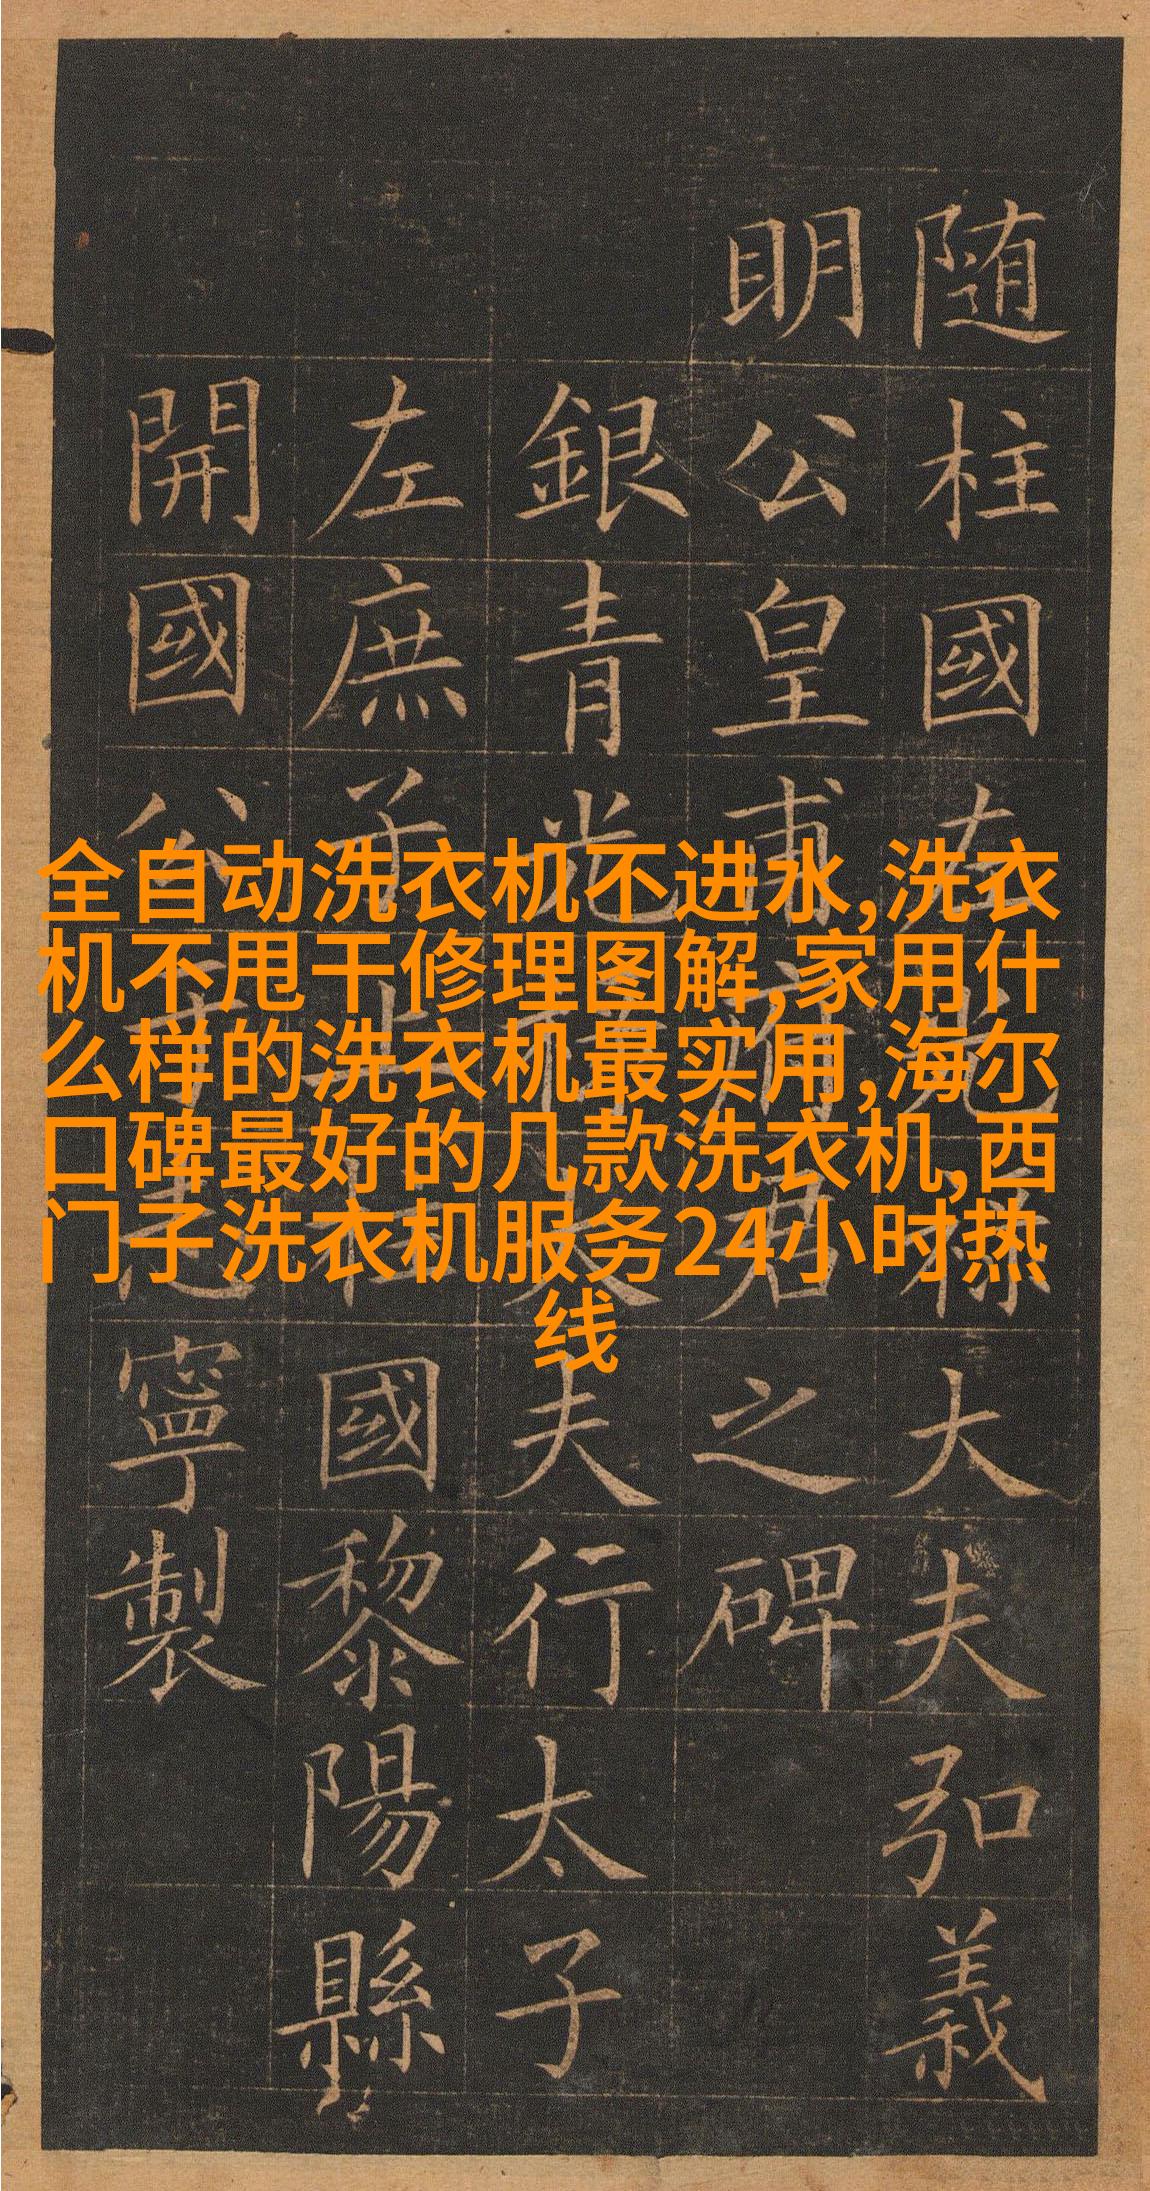 全自动洗衣机不进水,洗衣
机不甩干修理图解,家用什
么样的洗衣机最实用,海尔
口碑最好的几款洗衣机,西
门子洗衣机服务24小时热
线
随柱國左光祿大夫弘義
明公皇甫府君之碑
銀青光祿大夫行太子
左庶子上柱國黎陽縣
開國公于志寧製